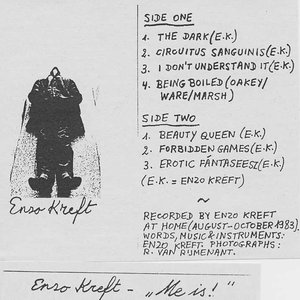 Enzo Kreft
SIDE ONE
1. THE DARK (E.K.)
2. CIRCUITUS SANGUINIS (E.K.)
3. I DON'T UNDERSTAND IT (E.K.)
4. BEING BOILED (OAKEY/
WARE/MARSH)
SIDE TWO
1. BEAUTY QUEEN (E.K.)
2. FORBIDDEN GAMES (E.K.)
3. EROTIC FANTASEESZ (E.K.)
(E.K. = ENZO KREFT)
~
RECORDED BY ENZO KREFT
AT HOME (AUGUST-OCTOBER 1983).
WORDS, MUSIC & INSTRUMENTS:
ENZO KREFT. PHOTOGRAPHS:
R. VAN RIJMENANT.
Enzo Kreft - „Me is!"